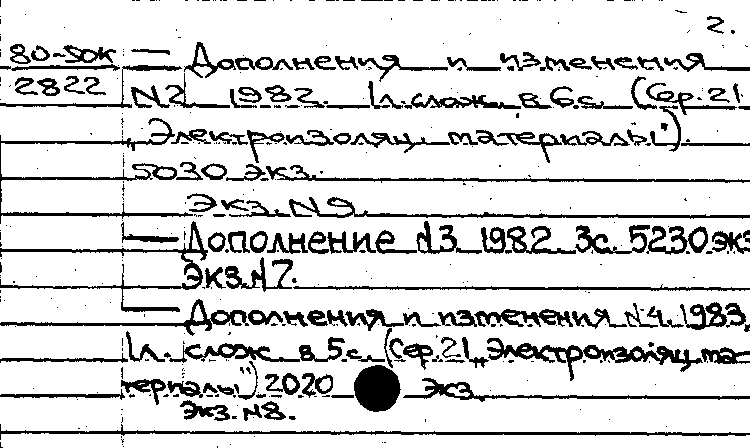 2.
80-50к — Дополнения и изменения
2822 N2 1982. 1л. слож. в 6 с. (Сер. 21
„Электроизоляц. материалы").
5030 экз.
Экз. N9.
— Дополнение N3 1982. 3с. 5230 экз
Экз. N7.
— Дополнения и изменения N4. 1983.
1л. слож в 5 с. (Сер. 21 „Электроизоляц. ма-
териалы") 2020 экз.
Экз. N8.